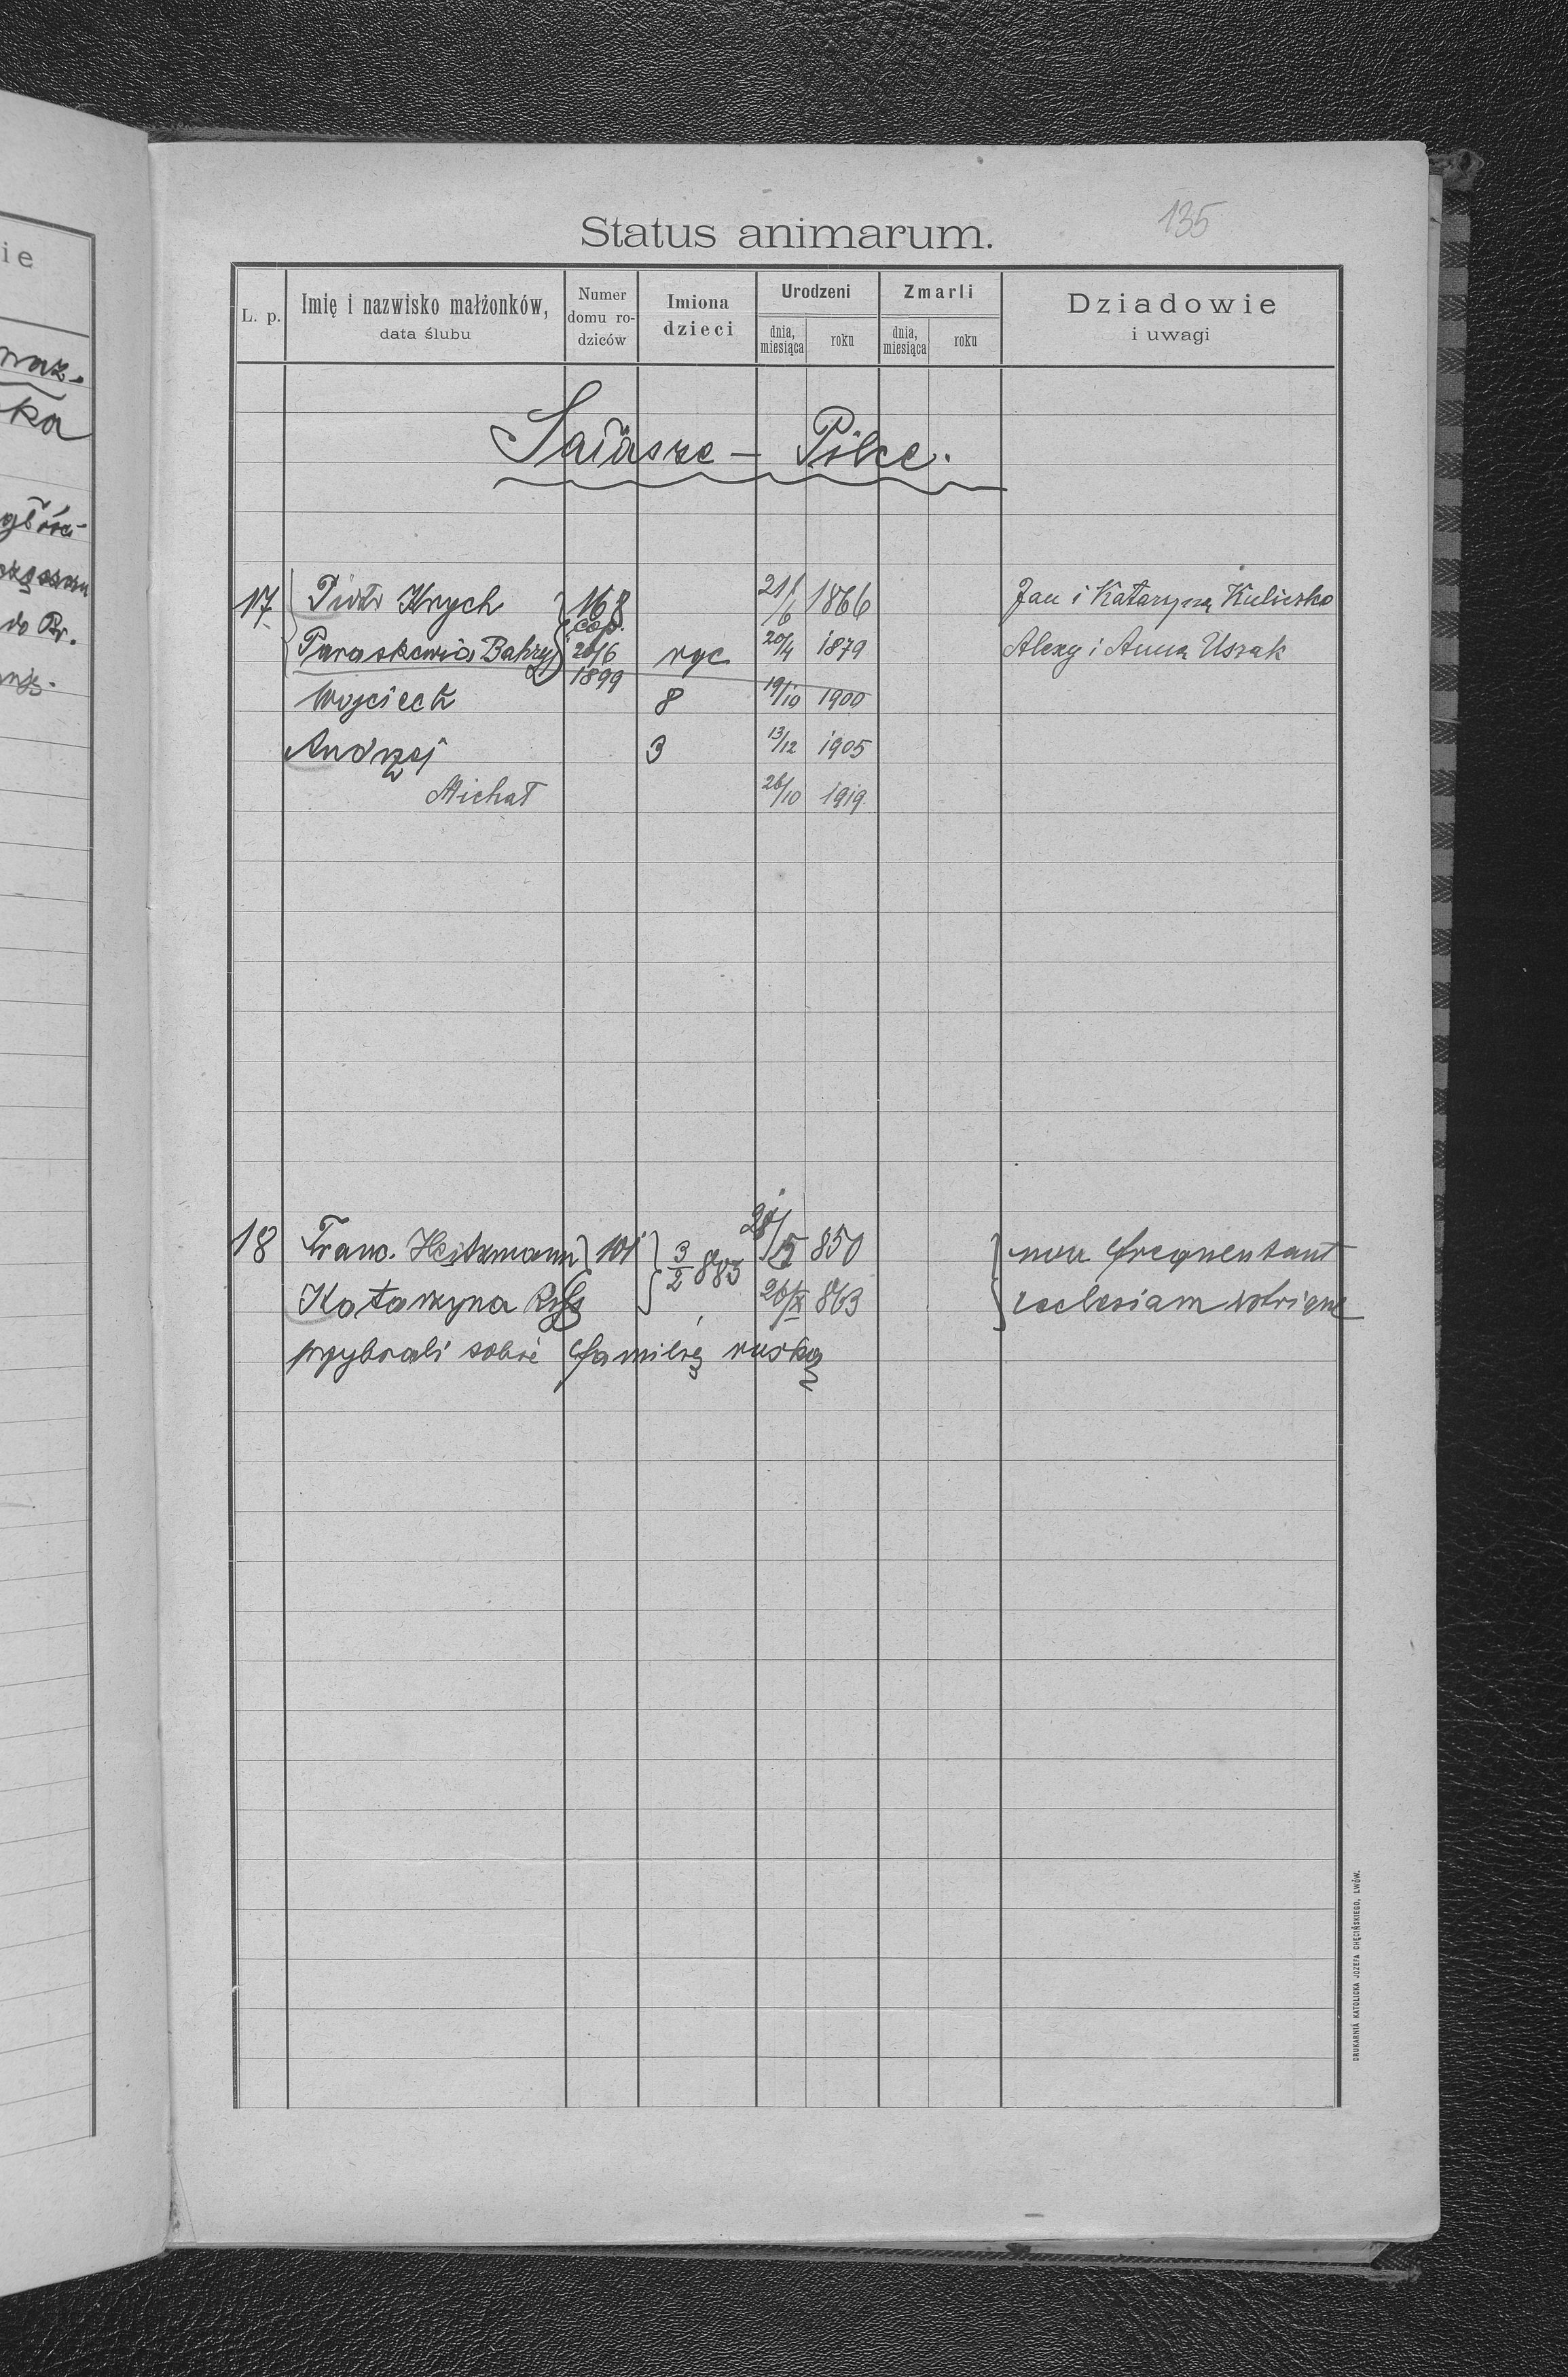 ie
ka
do Pr.
135
Status animarum.
L. p. Imię i nazwisko małżonków, data ślubu Numer domu rodziców Imiona dzieci Urodzeni dnia, miesiąca roku Zmarli dnia, miesiąca roku Dziadowie i uwagi
Sałasze – Pilce.
17 Piotr Krych 168 21/6 1866 Jan i Katarzyna Kuliczko
cop.
Paraskewia Bahryj 20/6 ryc 20/4 1879 Alexy i Anna Uszak
1899
Wojciech 8 19/10 1900
Andrzej 3 13/12 1905
Michał 26/10 1919.
18 Franc. Heitzmann 101 3/2 883 850 non frequentant
Katarzyna 26/X 863 ecclesiam
przybrali sobie familię ruską
DRUKARNIA KATOLICKA JOZEFA CHĘCIŃSKIEGO, LWÓW.